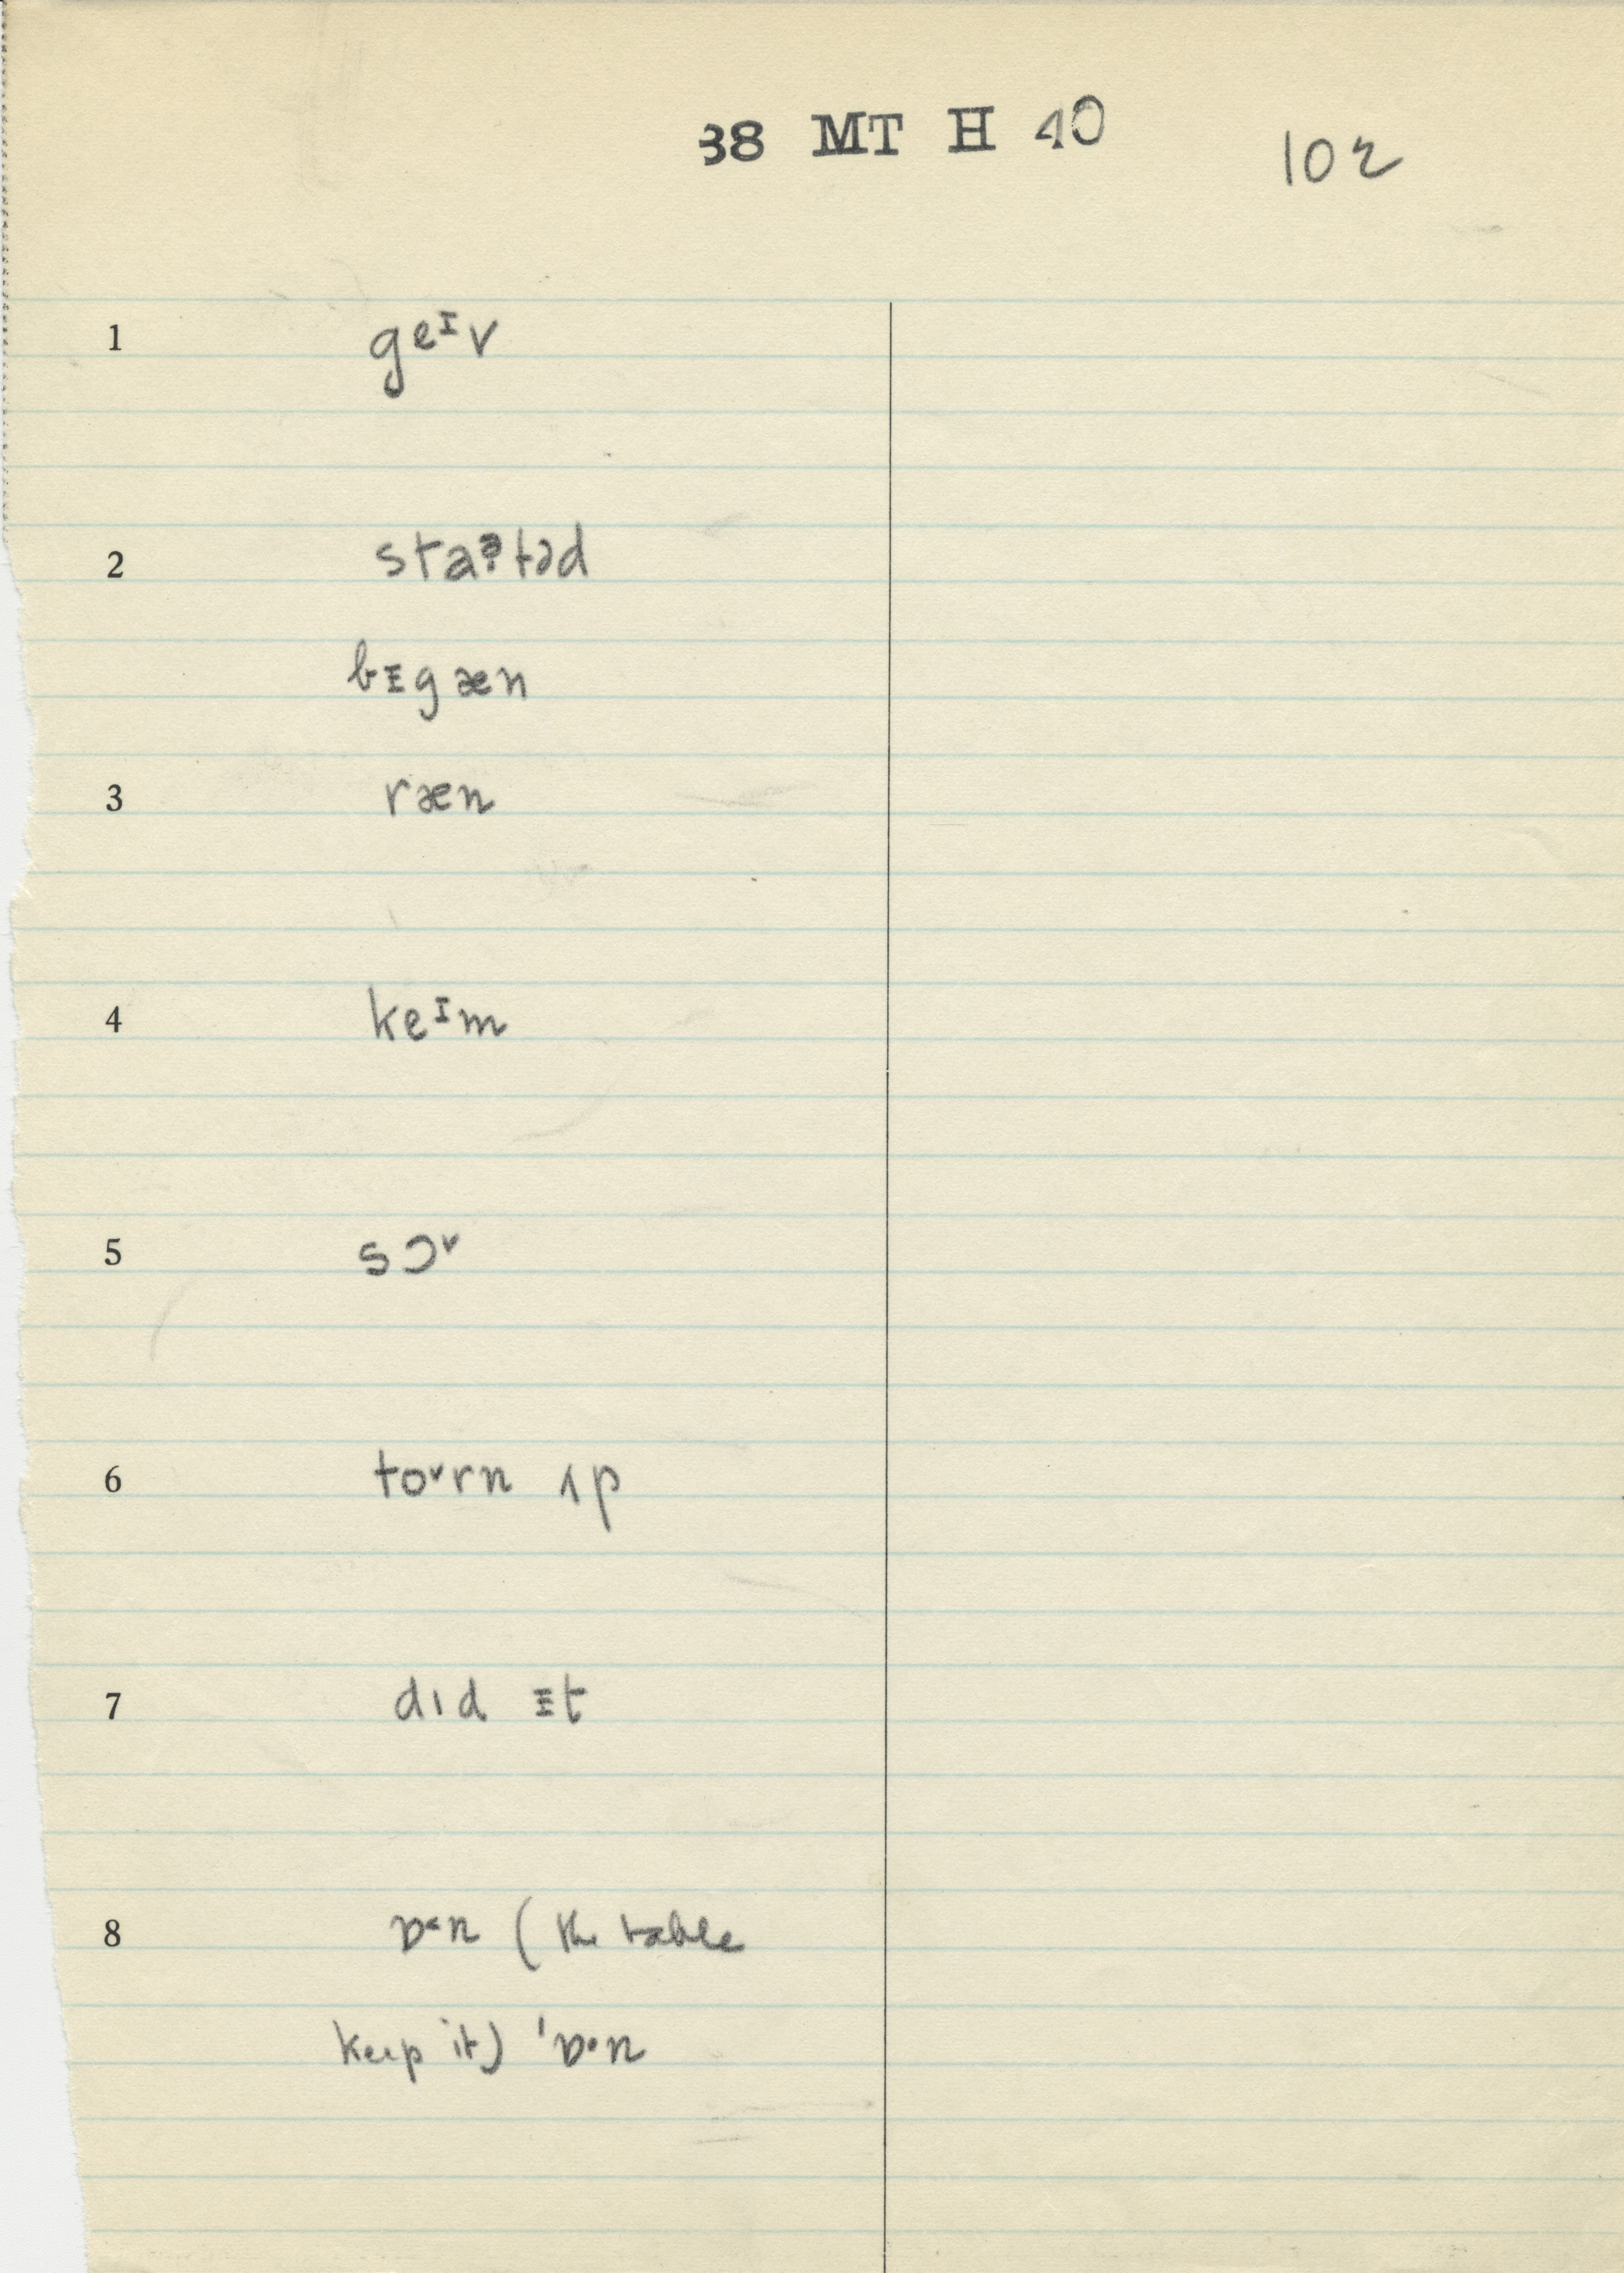 38 MT H 40 102
1 geᴵv
2 staɚtəd
bᵻgæn
3 ræn
4 keᴵm
5 sɔ˅
6 to˅rn ʌp
7 dɪd ᵻt
8 ɒ˂n (the table
keep it) ˈɒ·n